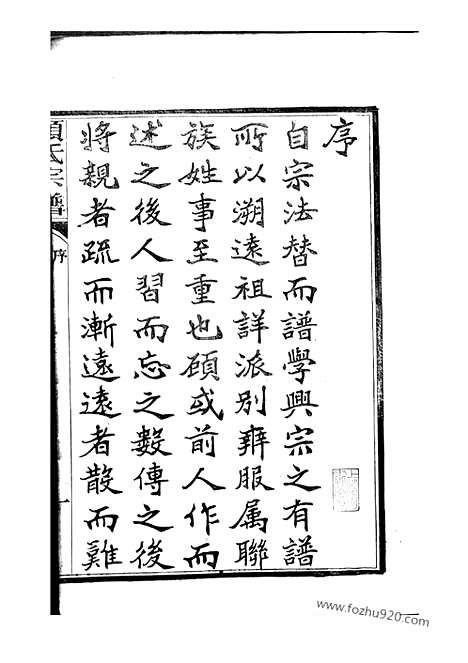 序
自宗法替而譜學興宗之有譜
所以溯遠祖詳派別辨服属聯
族姓事至重也顧或前人作而
述之後人習而忘之數傳之後
將親者疏而漸遠遠者散而難
氏宗譜
序
一
www.fozhu920.com